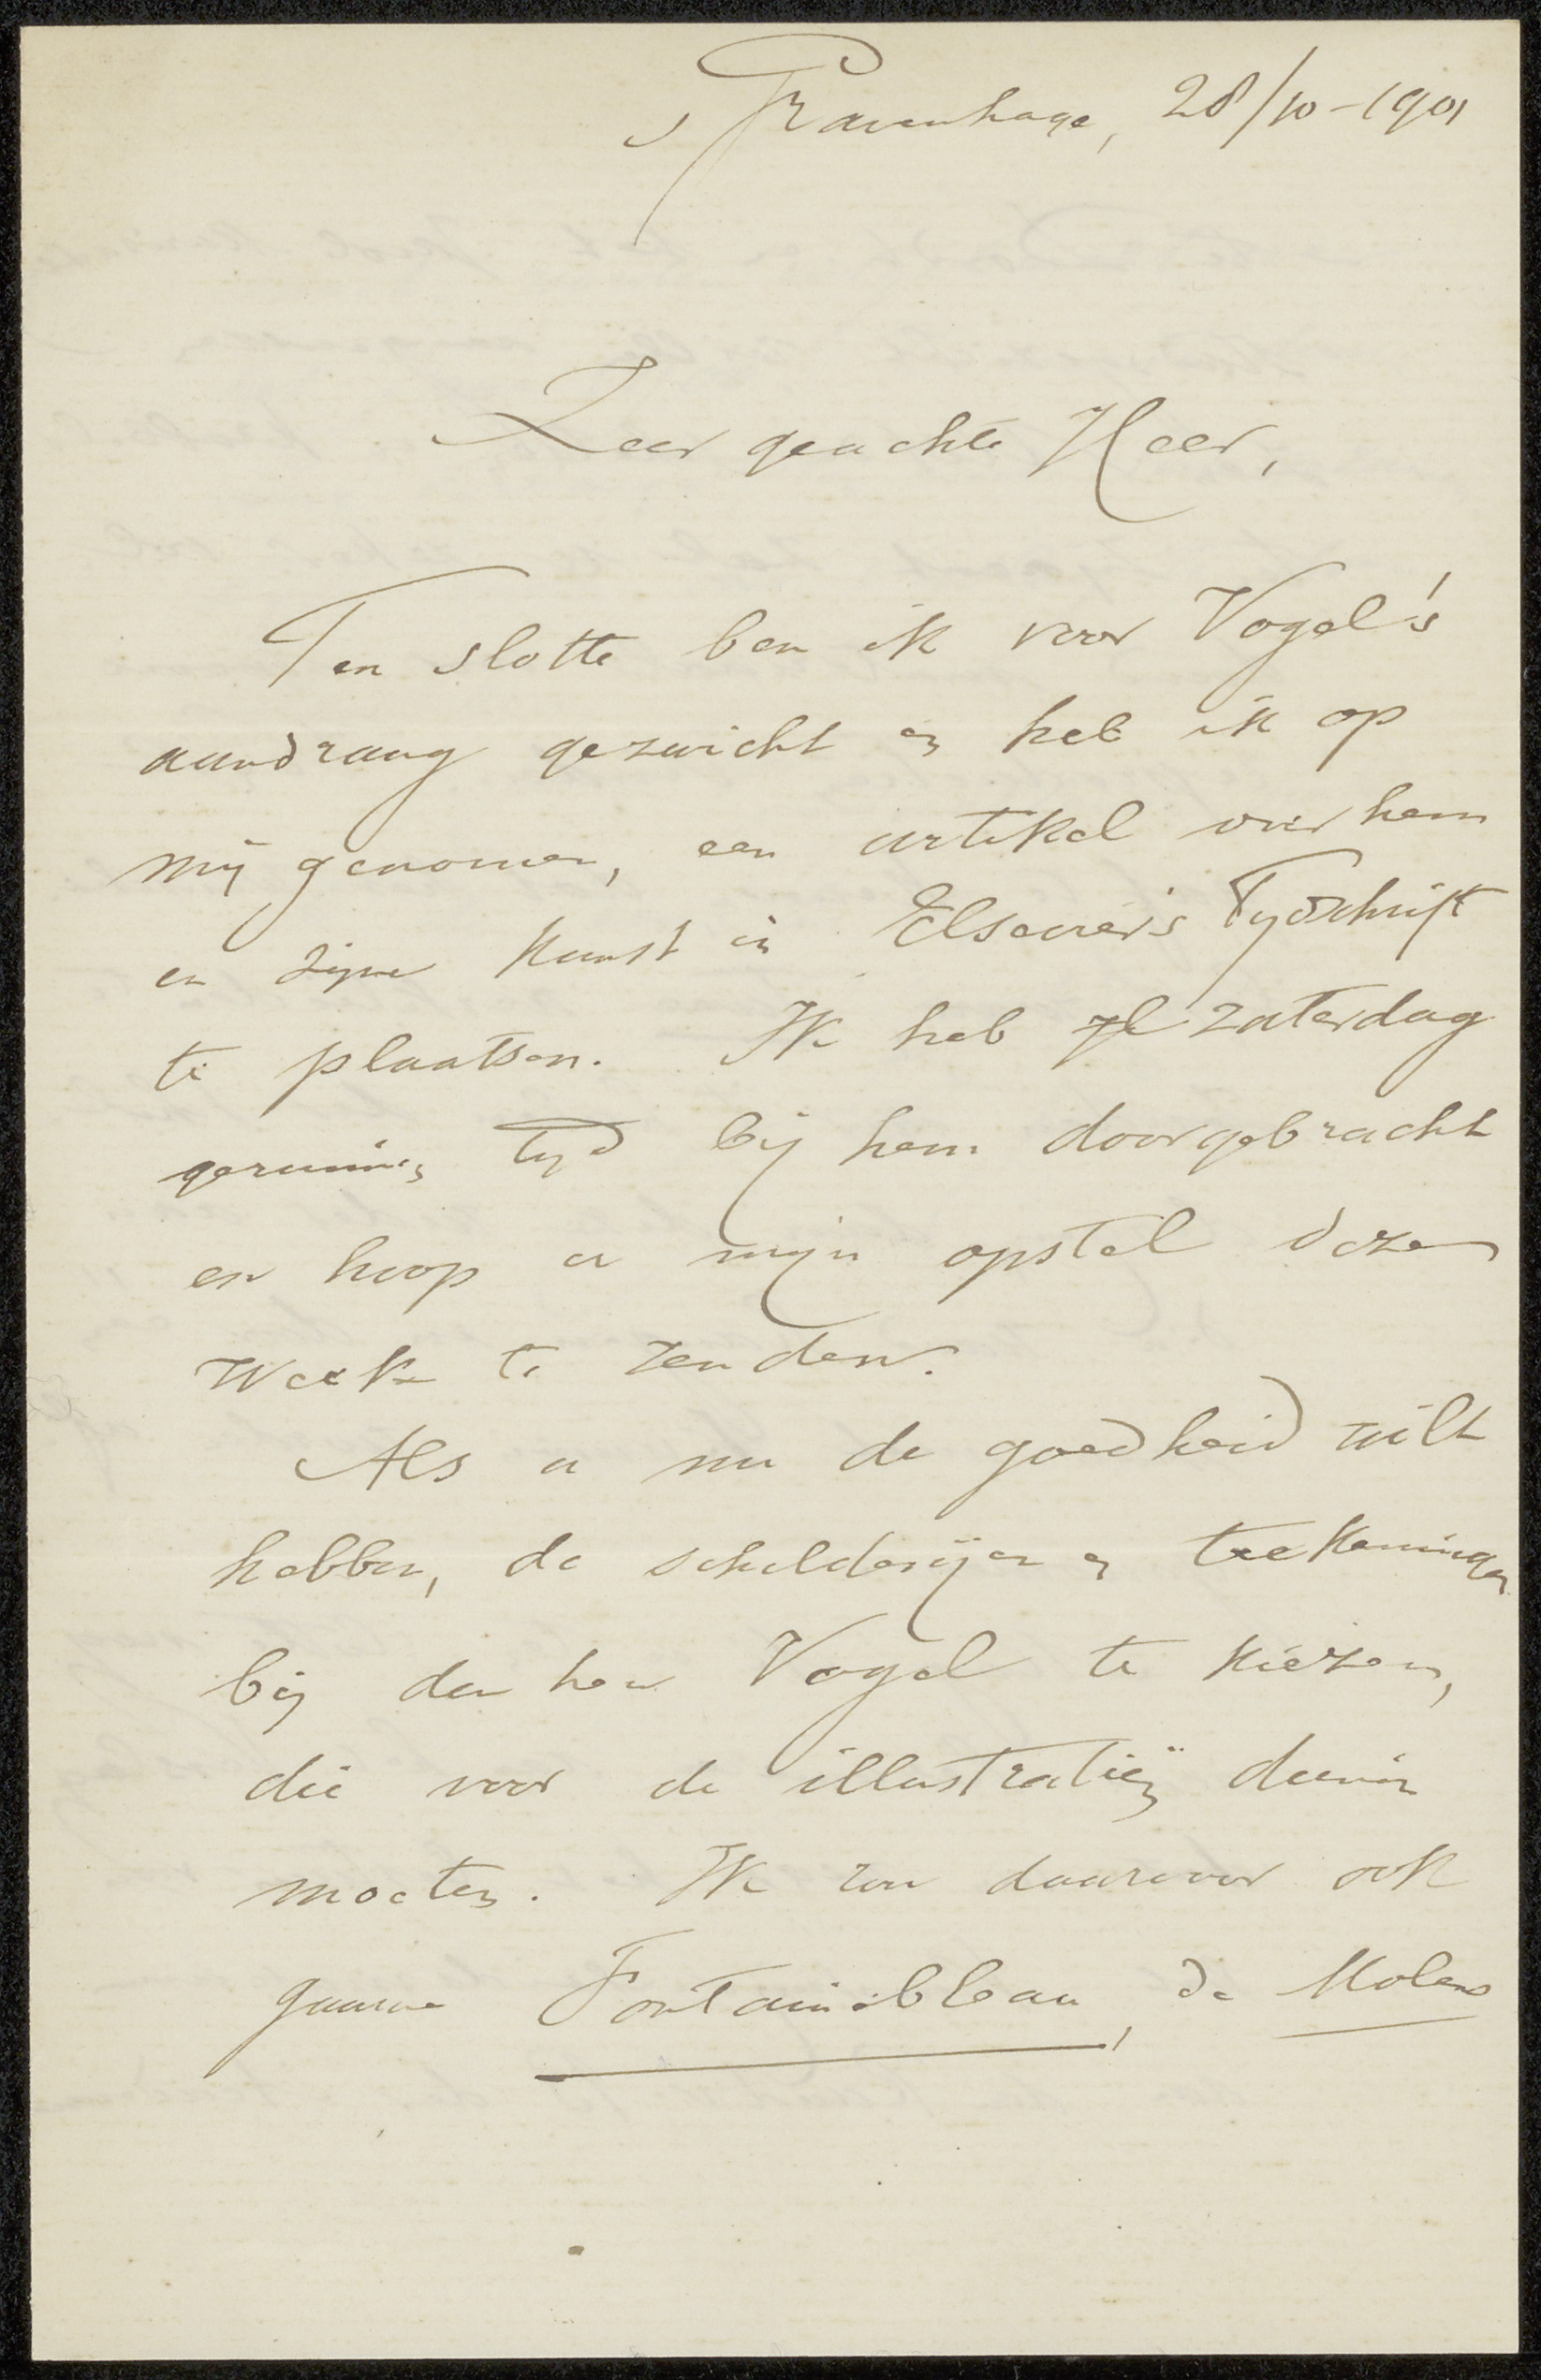 s Gravenhage, 28/10-1901
Zeer geachte Heer,
Ten slotte ben ik voor Vogel's
aandrang gezwicht en heb ik op
mij genomen, een artikel over hem
en zijne kunst in Elsevier's Tydschrift
te plaatsen. Ik heb zaterdag
geruimen tyd bij hem doorgebracht
en hoop u mijn opstel deze
week te zenden.
Als u nu de goedheid wilt
hebben, de schilderijen en teekeningen
bij den heer Vogel te kiezen,
die voor de illustratiën dienen
moeten. Ik zou daarvoor ook
gaarne Fontainebleau, de Molens